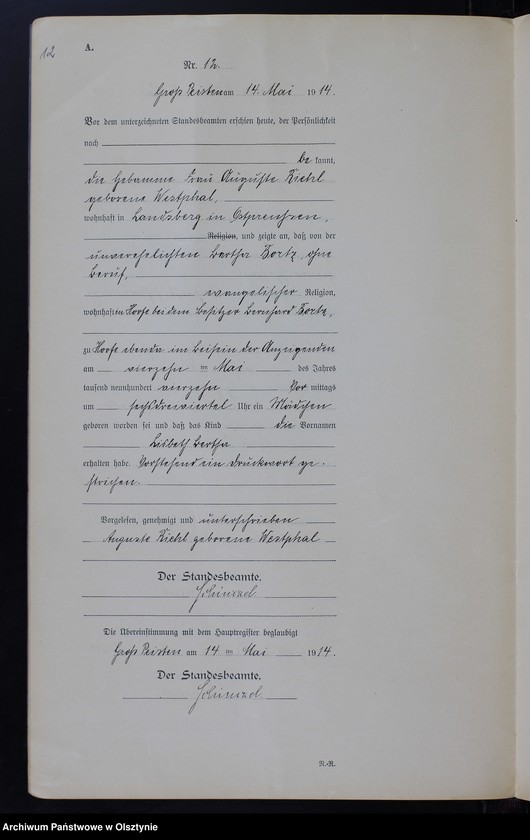 12
A.
Nr. 12.
Groß Peisten am 14. Mai 1914.
Vor dem unterzeichneten Standesbeamten erschien heute, der Persönlichkeit
nach
be kannt,
die Hebamme Frau Auguste Kiehl
geborene Westphal,
wohnhaft in Landsberg in Ostpreußen,
Religion, und zeigte an, daß von der
unverehelichten Bertha Zortz, ohne
Beruf,
evangelischer Religion,
wohnhaft in Hoofe bei dem Besitzer Bernhard Zortz,
zu Hoofe ebenda im Beisein der Anzeigenden
am vierzehn ten Mai des Jahres
tausend neunhundert vierzehn Vor mittags
um sechsdreiviertel Uhr ein Mädchen
geboren worden sei und daß das Kind die Vornamen
Lisbeth Bertha
erhalten habe. Vorstehend ein Druckwort ge-
strichen.
Vorgelesen, genehmigt und unterschrieben
Auguste Kiehl geborene Westphal
Der Standesbeamte.
Die Übereinstimmung mit dem Hauptregister beglaubigt
Groß Peisten am 14 ten Mai 1914.
Der Standesbeamte.
N.-R.
Archiwum Państwowe w Olsztynie